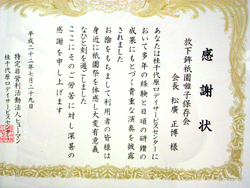 感謝状
放下鉾祇園囃子保存会
会長 松廣 正博 様
あなたは桂千代原口デイサービスセンターに
おいて多年の経験と日頃の研鑽の
成果にもとづく貴重な演奏を披露
されました
お陰をもちまして利用者の皆様は
身近に祇園祭を体感し大変有意義
なひと時を過ごしました
ここにそのご労苦に対し深甚の
感謝を申し上げます
平成二十二年七月二十九日
特定非営利活動法人ヒューマン
桂千代原口デイサービス